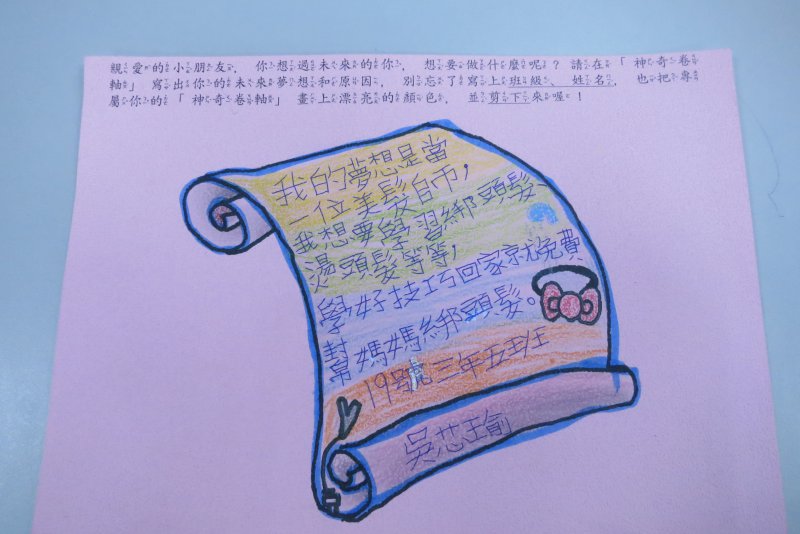 親愛的小朋友，你想過未來的你，想要做什麼呢？請在「神奇卷
軸」寫出你的未來夢想和原因，別忘了寫上班級、姓名，也把專
屬你的「神奇卷軸」畫上漂亮的顏色，並剪下來喔！
我的夢想是當
一位美髮自币，
我想要學習綁頭髮、
燙頭髮等等，
學好技巧回家就免費
幫媽媽綁頭髮。
19號三年五班
吳芯瑜